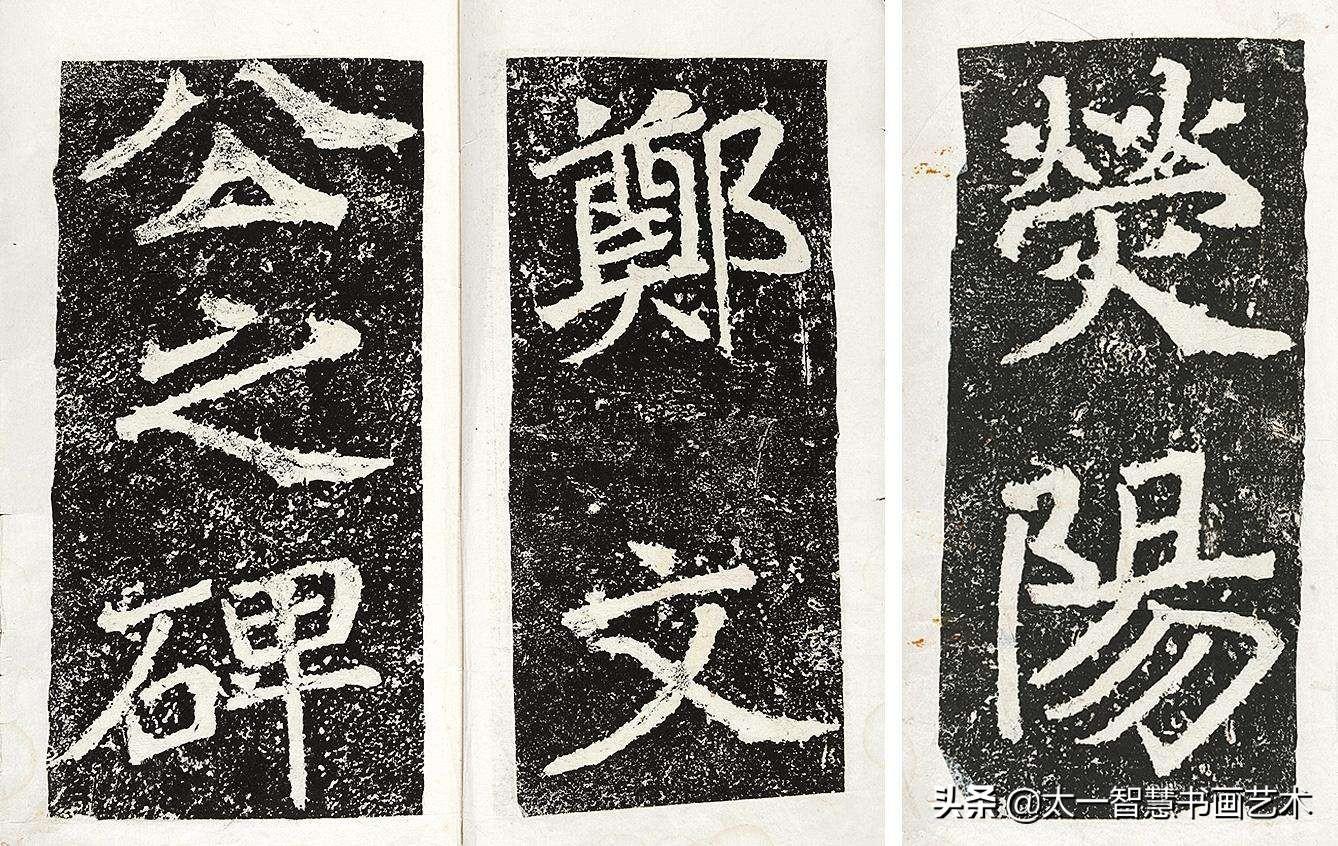 熒陽
鄭文
公之碑
头条 @太一智慧书画艺术